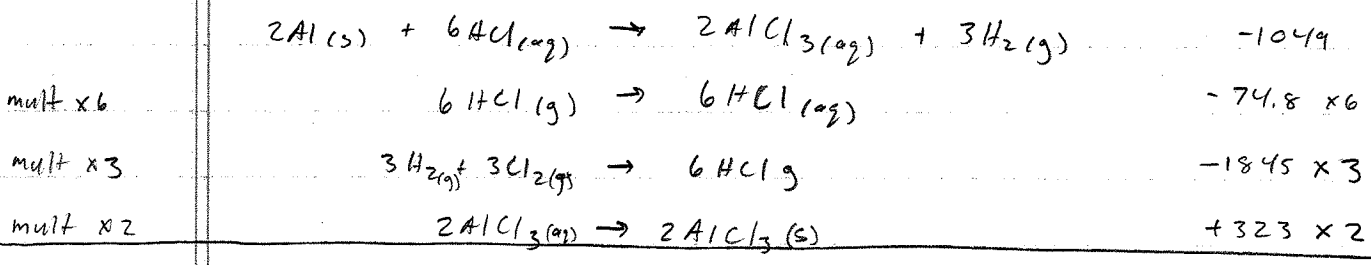 2Al(s) + 6HCl(aq) → 2AlCl3(aq) + 3H2(g) -1049
mult x6 6HCl(g) → 6HCl(aq) -74.8 x6
mult x3 3H2(g) + 3Cl2(g) → 6HCl g -1845 x 3
mult x2 2AlCl3(aq) → 2AlCl3(s) +323 x 2